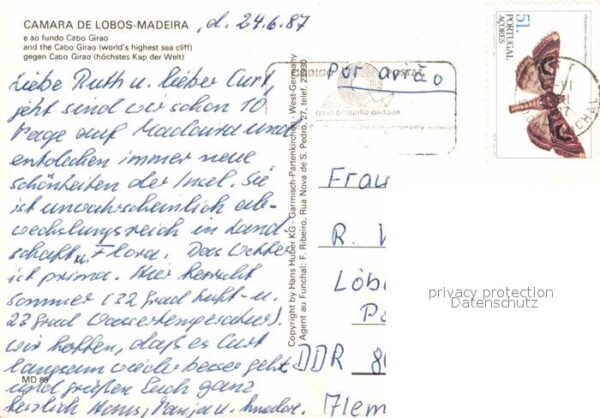 CAMARA DE LOBOS-MADEIRA , d. 24.6.87
e ao fundo Cabo Girao
and the Cabo Girao (world's highest sea cliff)
gegen Cabo Girao (höchstes Kap der Welt)
Liebe Ruth u. lieber Curt,
jetzt sind wir schon 10
Tage auf Madeira und
entdecken immer neue
Schönheiten der Insel. Sie
ist unwahrscheinlich ab-
wechslungsreich in Land-
schaft u. Flora. Das Wetter
ist prima. Hier herrscht
Sommer (22 Grad Luft- u.
23 Grad Wassertemperatur).
Wir hoffen, daß es Curt
langsam wieder besser geht
und grüßen Euch ganz
herzlich
MD 86
Copyright by Hans Huber KG - Garmisch-Partenkirchen - West-Germany
Agent au Funchal: F. Ribeiro, Rua Nova de S. Pedro, 27, telef. 22930
Por avião
CODIGO POSTAL
51
PORTUGAL
AÇORES
Frau
R.
DDR
privacy protection
Datenschutz